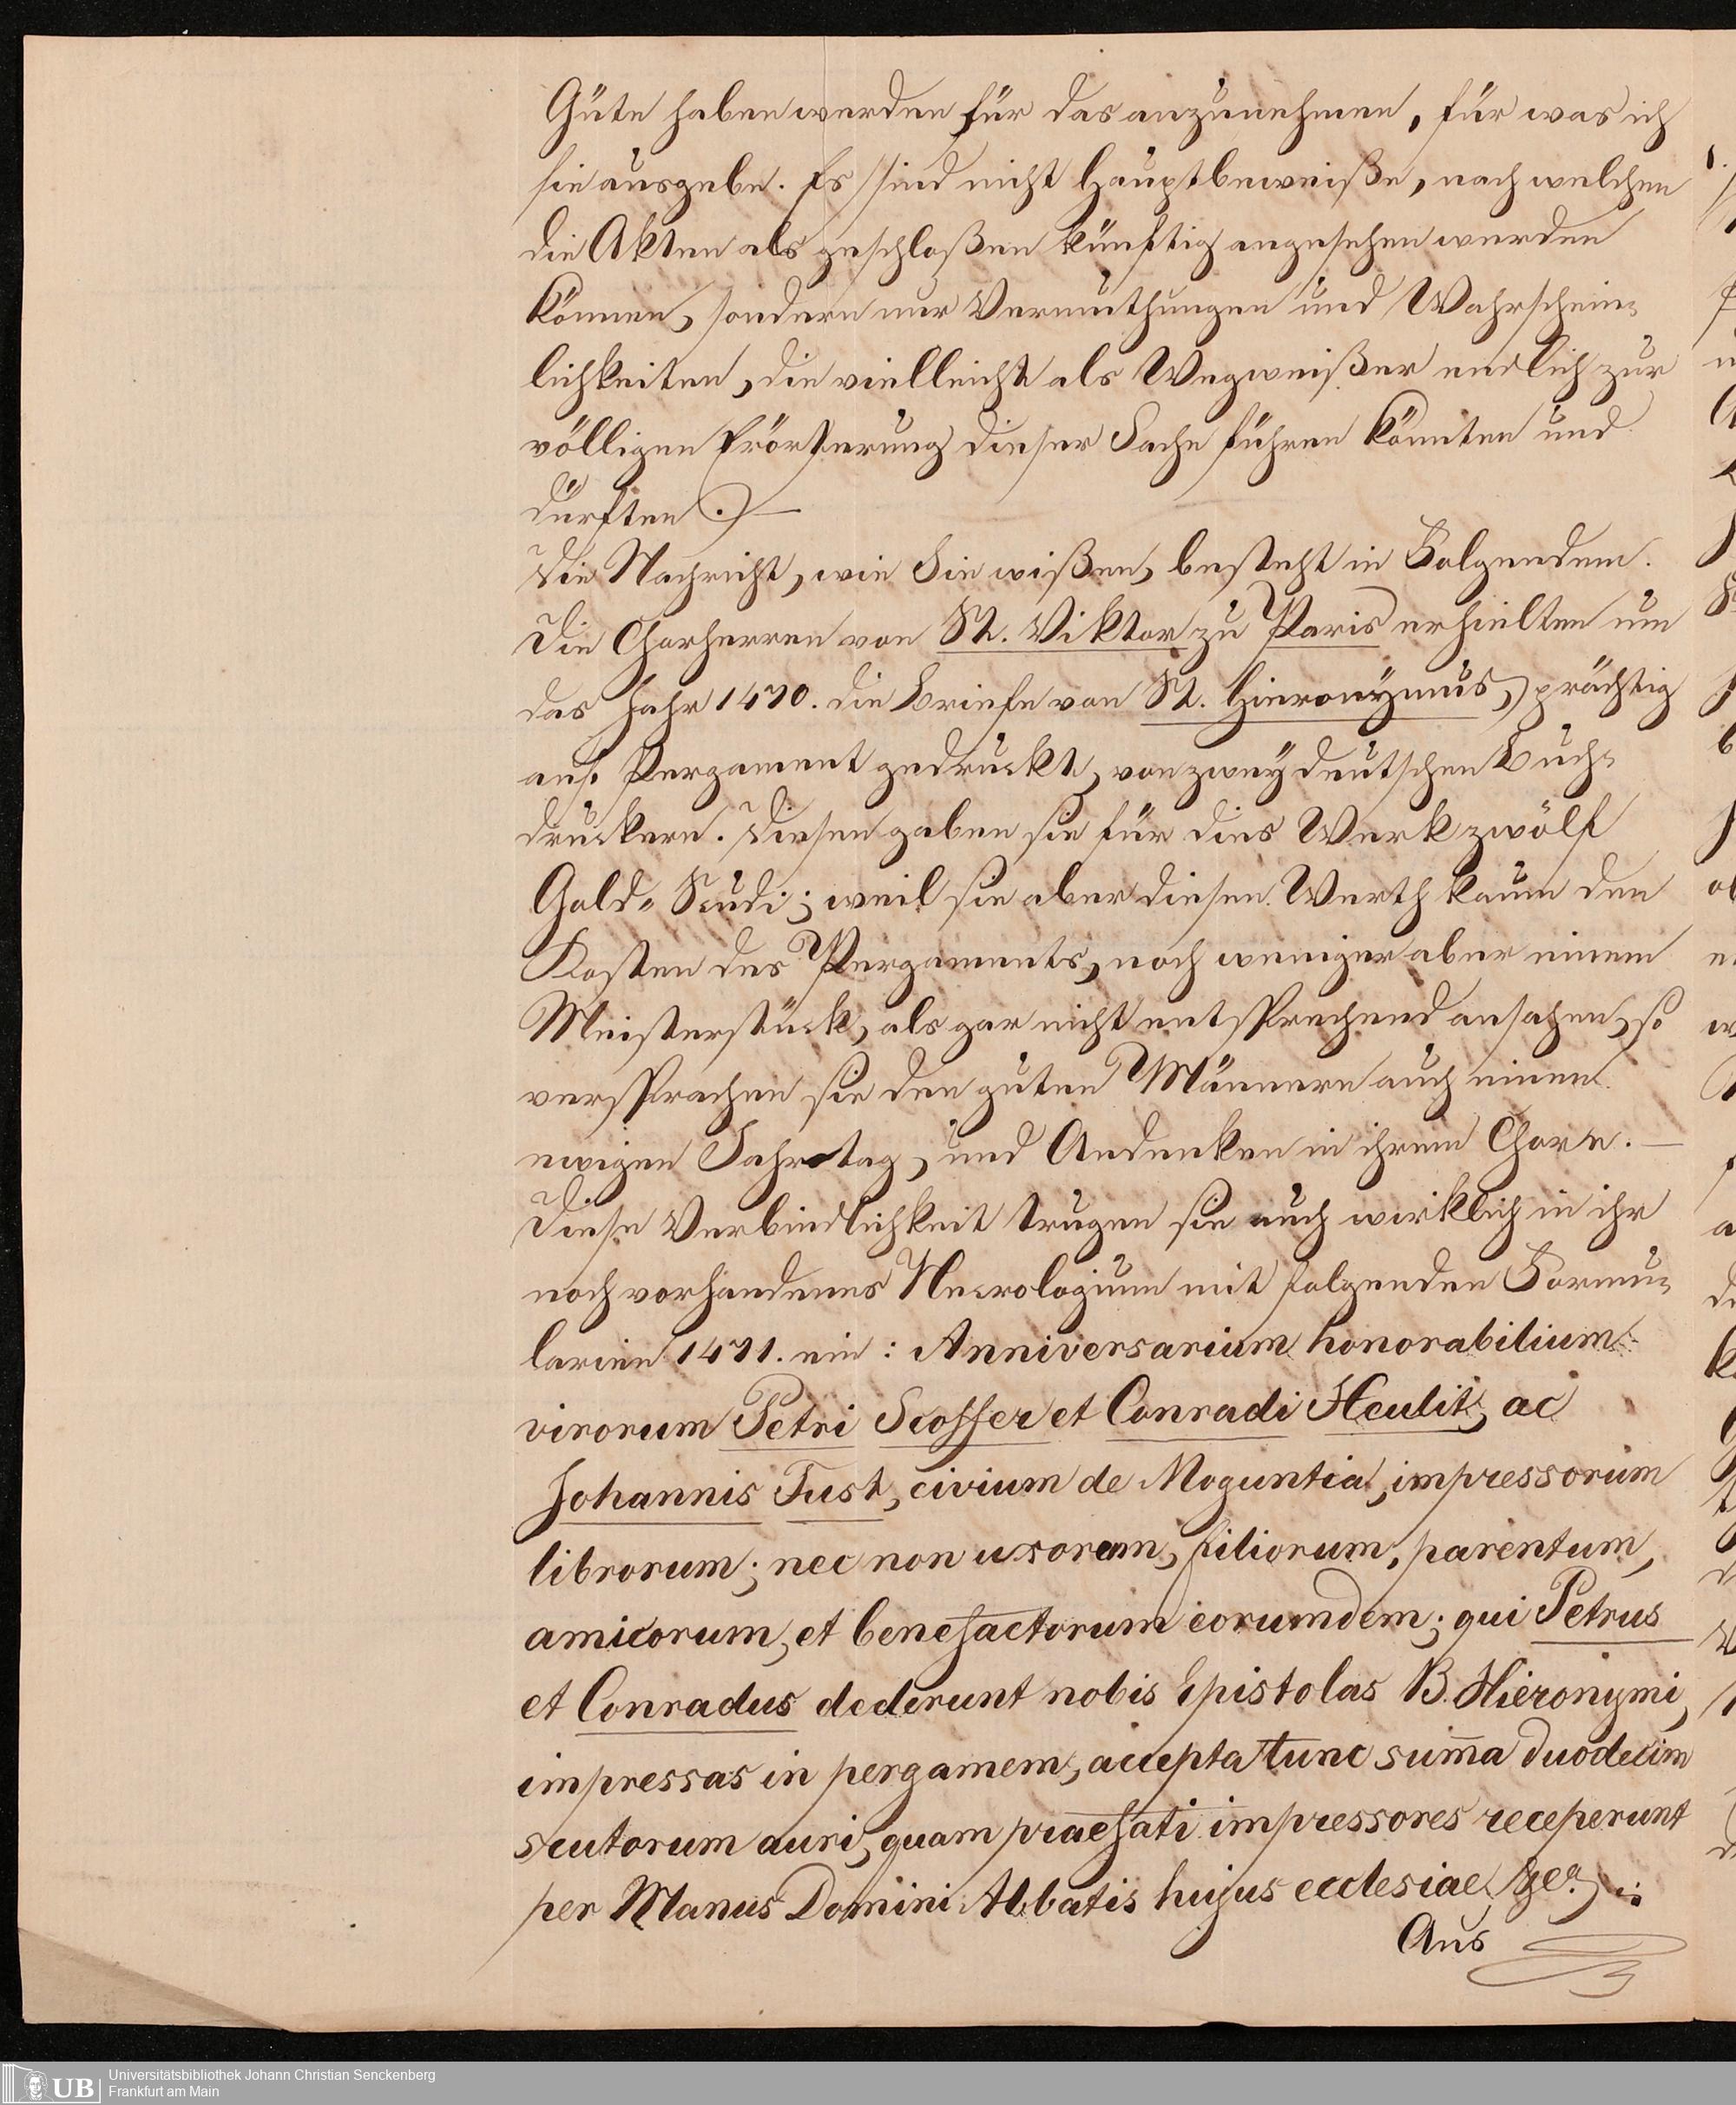 Güte haben werden für das anzunehmen, für was ich
sie ausgebe. Es sind nicht Hauptbeweiße, nach welchen
die Akten als geschloßen künftig angesehen werden
können, sondern nur Vermuthungen und Wahrschein-
lichkeiten, die vielleicht als Wegweißer endlich zur
völligen Erörterung dieser Sache führen könnten und
dürften.) —
Die Nachricht, wie Sie wißen, besteht in Folgendem.
Die Chorherren von St. Viktor zu Paris erhielten um
das Jahr 1470. die Briefe von St. Hieronÿmus, prächtig
auf Pergament gedruckt, von zweÿ deutschen Buch-
druckern. Diesen gaben sie für dies Werk zwölf
Gold-Scudi; weil sie aber diesen Werth kaum den
Kosten des Pergaments, noch weniger aber einem
Meisterstück, als gar nicht entsprechend ansahen, so
versprachen sie den guten Männern auch einen
ewigen Jahrstag, und Andenken in ihrem Chore. —
Diese Verbindlichkeit trugen sie auch wirklich in ihr
noch vorhandenes Necrologium mit folgenden Formu-
larien 1471. ein: Anniversarium honorabilium
virorum Petri Scoffer et Conradi Heulit, ac
Johannis Fust, civium de Moguntia, impressorum
librorum; nec non uxorum, filiorum, parentum,
amicorum, et benefactorum eorumdem; qui Petrus
et Conradus dederunt nobis Epistolas B. Hieronymi,
impressas in pergamem, accepta tunc sum̄a duodecim
scutorum auri, quam praefati impressores receperunt
per Manus Domini Abbatis hujus ecclesiae,
Aus
Universitätsbibliothek Johann Christian Senckenberg
UB Frankfurt am Main